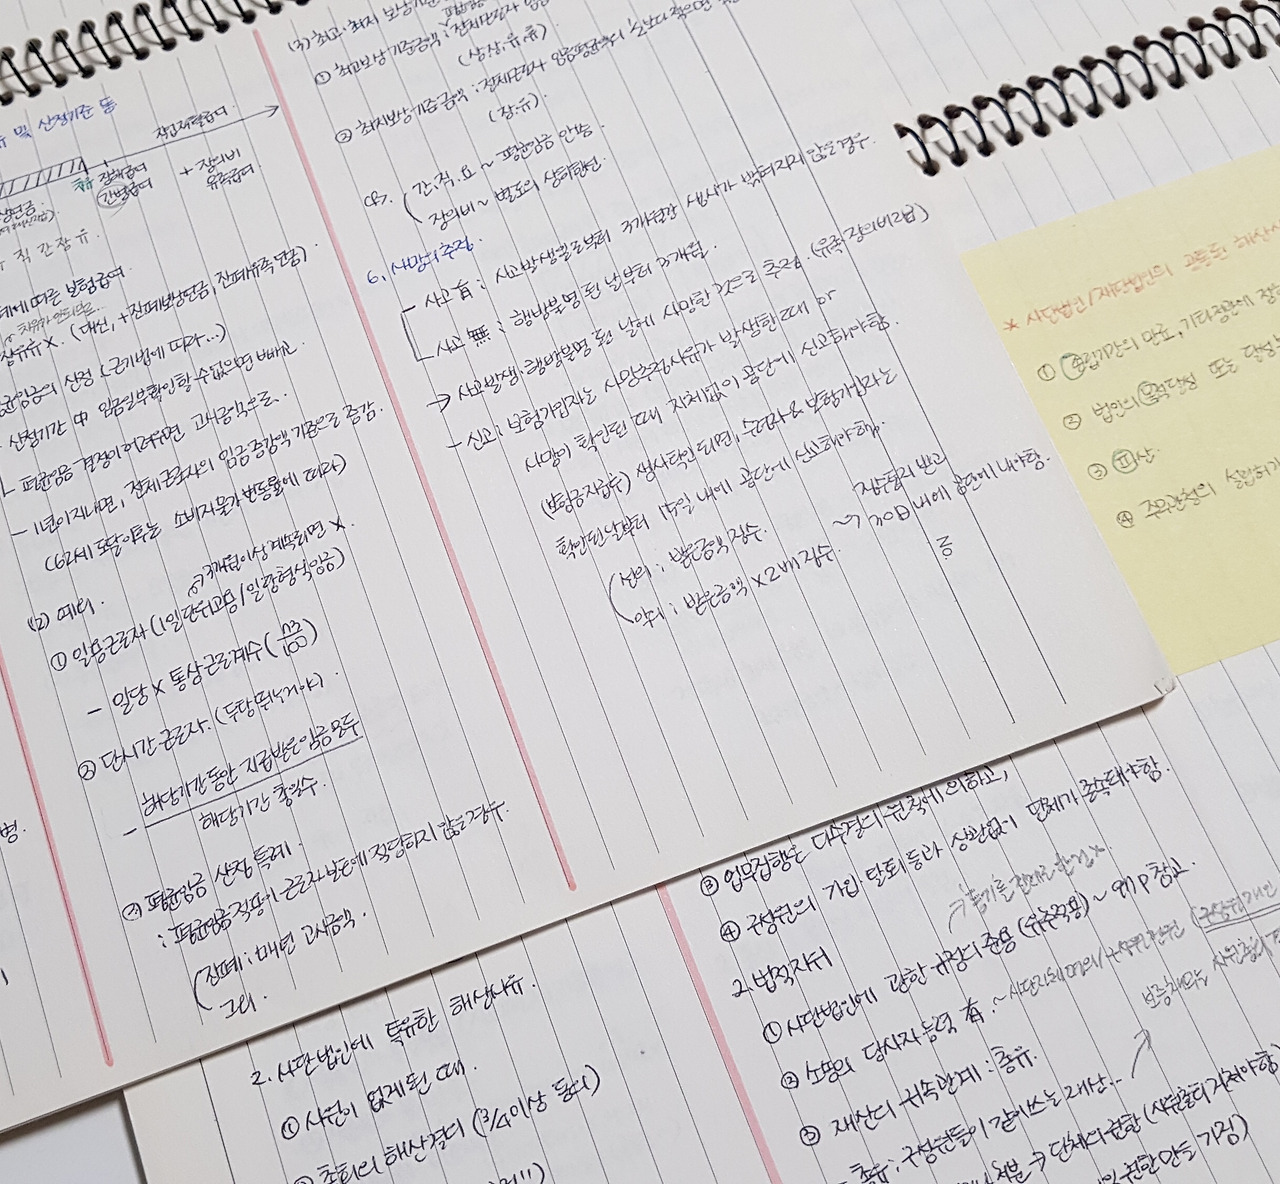 및 산정기준 등
직업재활급여
치유 장해급여 + 장의비
간병급여 유족급여
상병연금
직 간 장 유.
따른 보험급여.
(대신, +진폐보상연금, 진폐유족연금).
평균임금의 산정 (근기법에 따라...)
- 산정기간 中 임금일부확인할 수 없으면 빼고
- 평균임금 결정이 어려우면 고시금액으로.
- 1년이 지나면, 전체 근로자의 임금 증감액 기준으로 증감.
(62세 도달이후는 소비자물가변동률에 따라)
(2) 예외.
3개월이상 계속되면 X.
① 일용근로자 (1일단위고용/일당형식임금)
- 일당 X 통상근로계수 (73/100)
② 단시간 근로자. (두탕뛰는거야).
- 해당기간동안 지급받은 임금 모두
해당기간 총일수.
③ 평균임금 산정 특례.
: 평균임금 적용이 근로자 보호에 적당하지 않을 경우.
(진폐 : 매년 고시금액.
그외.
(3) 최고·최저 보상기준
① 최고보상기준금액 : 전체근로자 임금
(상.장.유.휴)
② 최저보상기준금액 : 전체근로자 임금평균액의 1/2보다 적으면
(장.유).
cf. (간.직.요 ~ 평균임금 안씀.
장의비 ~ 별도의 상하한선
6. 사망의 추정.
- 사고 有 : 사고발생일로부터 3개월간 생사가 밝혀지지 않을 경우.
- 사고 無 : 행방불명 된 날부터 3개월.
→ 사고발생·행방불명 된 날에 사망한 것으로 추정. (유족.장의비지급)
- 신고 : 보험가입자는 사망추정사유가 발생한 때 or
사망이 확인된 때 지체없이 공단에 신고해야함.
(보험금지급후) 생사확인되면, 수급자 & 보험가입자는
확인된 날부터 15일 내에 공단에 신고해야해.
(선의 : 받은금액 징수.
악의 : 받은금액 X2배 징수.
징수통지 받고
→ 30日 내에 공단에 내야함.
* 사단법인/재단법인의 공통된 해산사
① 존립기간의 만료, 기타 정관에 정한
② 법인의 목적달성 또는 달성
③ 파산.
④ 주무관청의 설립허가
2. 사단법인에 특유한 해산사유.
① 사원이 없게 된 때.
② 총회의 해산결의 (3/4 이상 동의)
③ 업무집행은 다수결의 원칙에 의하고,
④ 구성원의 가입·탈퇴 등과 상관없이 단체가 존속돼야함.
→ 등기를 전제로 한 것 X.
2. 법적지위
① 사단법인에 관한 규정의 준용 (유추적용) ~ 97p 참고.
② 소송의 당사자 능력 有.
③ 재산의 귀속관계 : 총유.
총유 : 구성원들이 같이 쓰는 재산.
처분 → 단체의 권한 (사원총회 거쳐야 함)